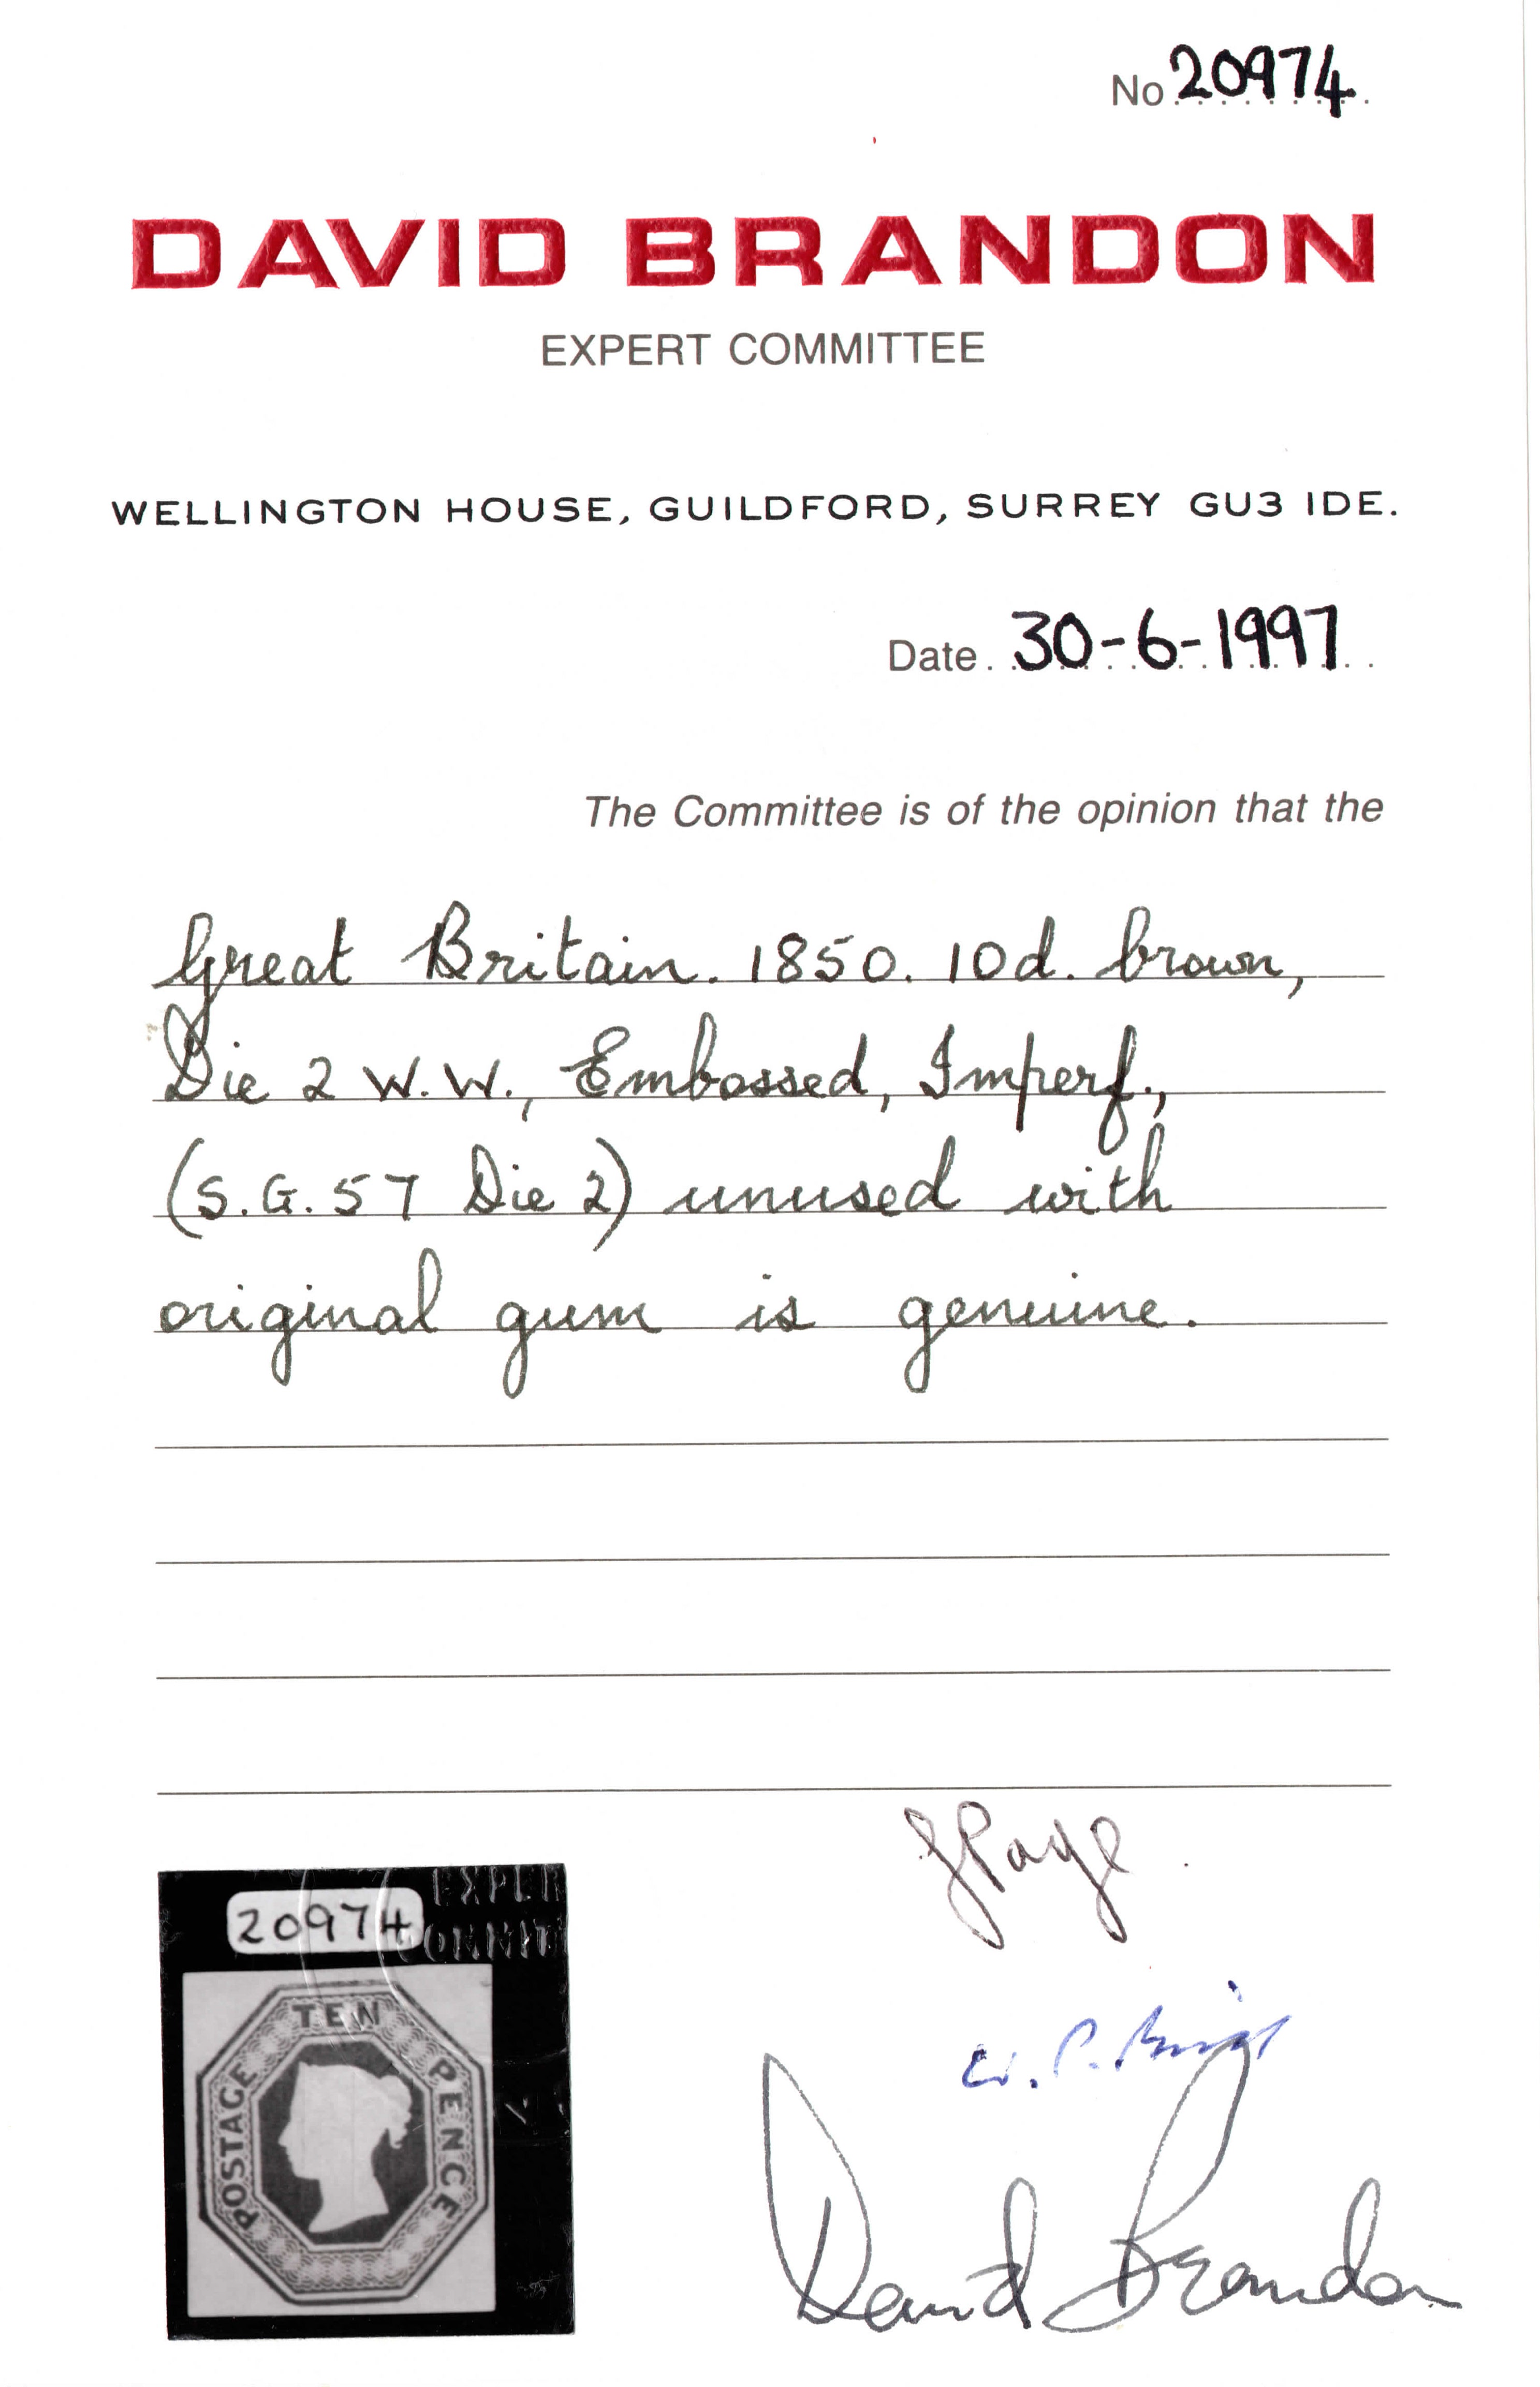 No 20974
DAVID BRANDON
EXPERT COMMITTEE
WELLINGTON HOUSE, GUILDFORD, SURREY GU3 IDE.
Date. 30-6-1997
The Committee is of the opinion that the
Great Britain. 1850. 10d. brown,
Die 2 W.W., Embossed, Imperf.,
(S.G. 57 Die 2) unused with
original gum is genuine.
20974
TEN
POSTAGE
PENCE
David Brandon